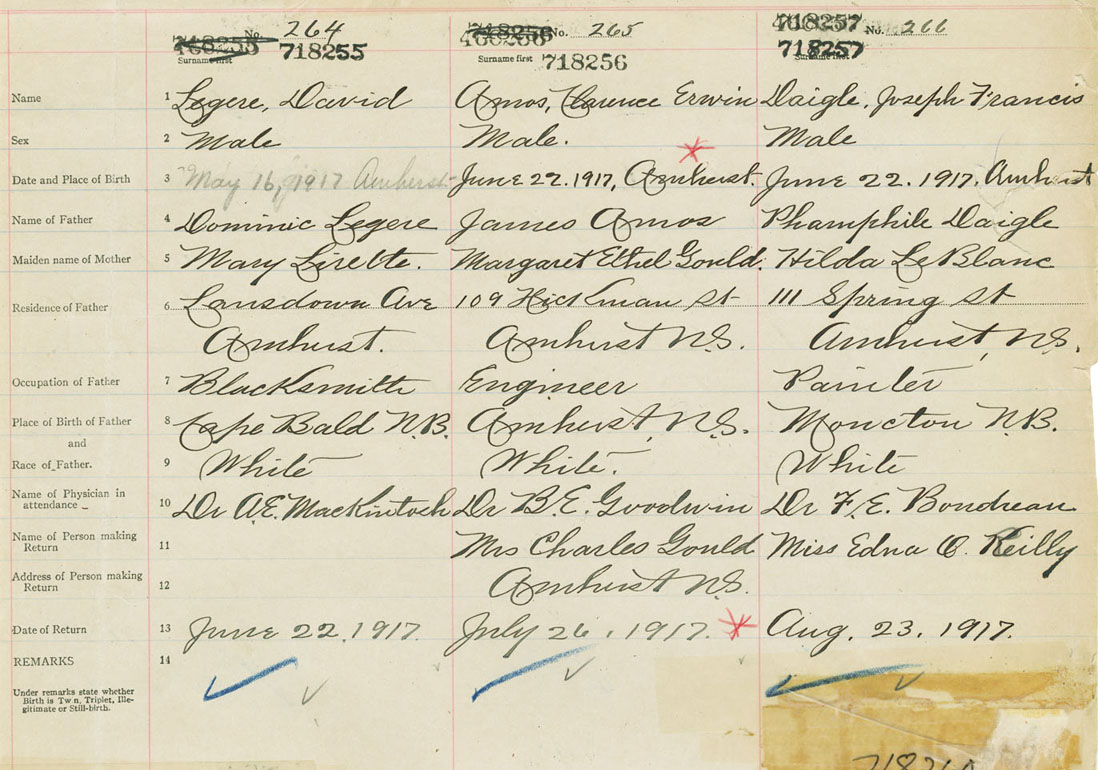 No. 264
718255
718255
Surname first
718256
No. 265
Surname first 718256
718257
No. 266
718257
Surname first
Name 1 Legere, David Amos, Clarence Erwin Daigle, Joseph Francis
Sex 2 Male Male. Male
Date and Place of Birth 3 May 16, 1917 Amherst June 22. 1917, Amherst. June 22. 1917. Amherst
Name of Father 4 Dominic Legere James Amos Phamphile Daigle
Maiden name of Mother 5 Mary Lirette. Margaret Ethel Gould. Hilda LeBlanc
Residence of Father 6 Lansdown Ave 109 Hickman St 111 Spring St
Amherst. Amherst N.S. Amherst, N.S.
Occupation of Father 7 Blacksmith Engineer Painter
Place of Birth of Father 8 Cape Bald N.B. Amherst, N.S. Moncton N.B.
and
Race of Father. 9 White White. White
Name of Physician in
attendance 10 Dr A.E. MacKintosh Dr B.E. Goodwin Dr F.E. Boudreau
Name of Person making
Return 11 Mrs Charles Gould Miss Edna O. Reilly
Address of Person making
Return 12 Amherst N.S.
Date of Return 13 June 22, 1917 July 26, 1917. Aug. 23. 1917.
REMARKS 14
Under remarks state whether
Birth is Twin, Triplet, Ille-
gitimate or Still-birth.